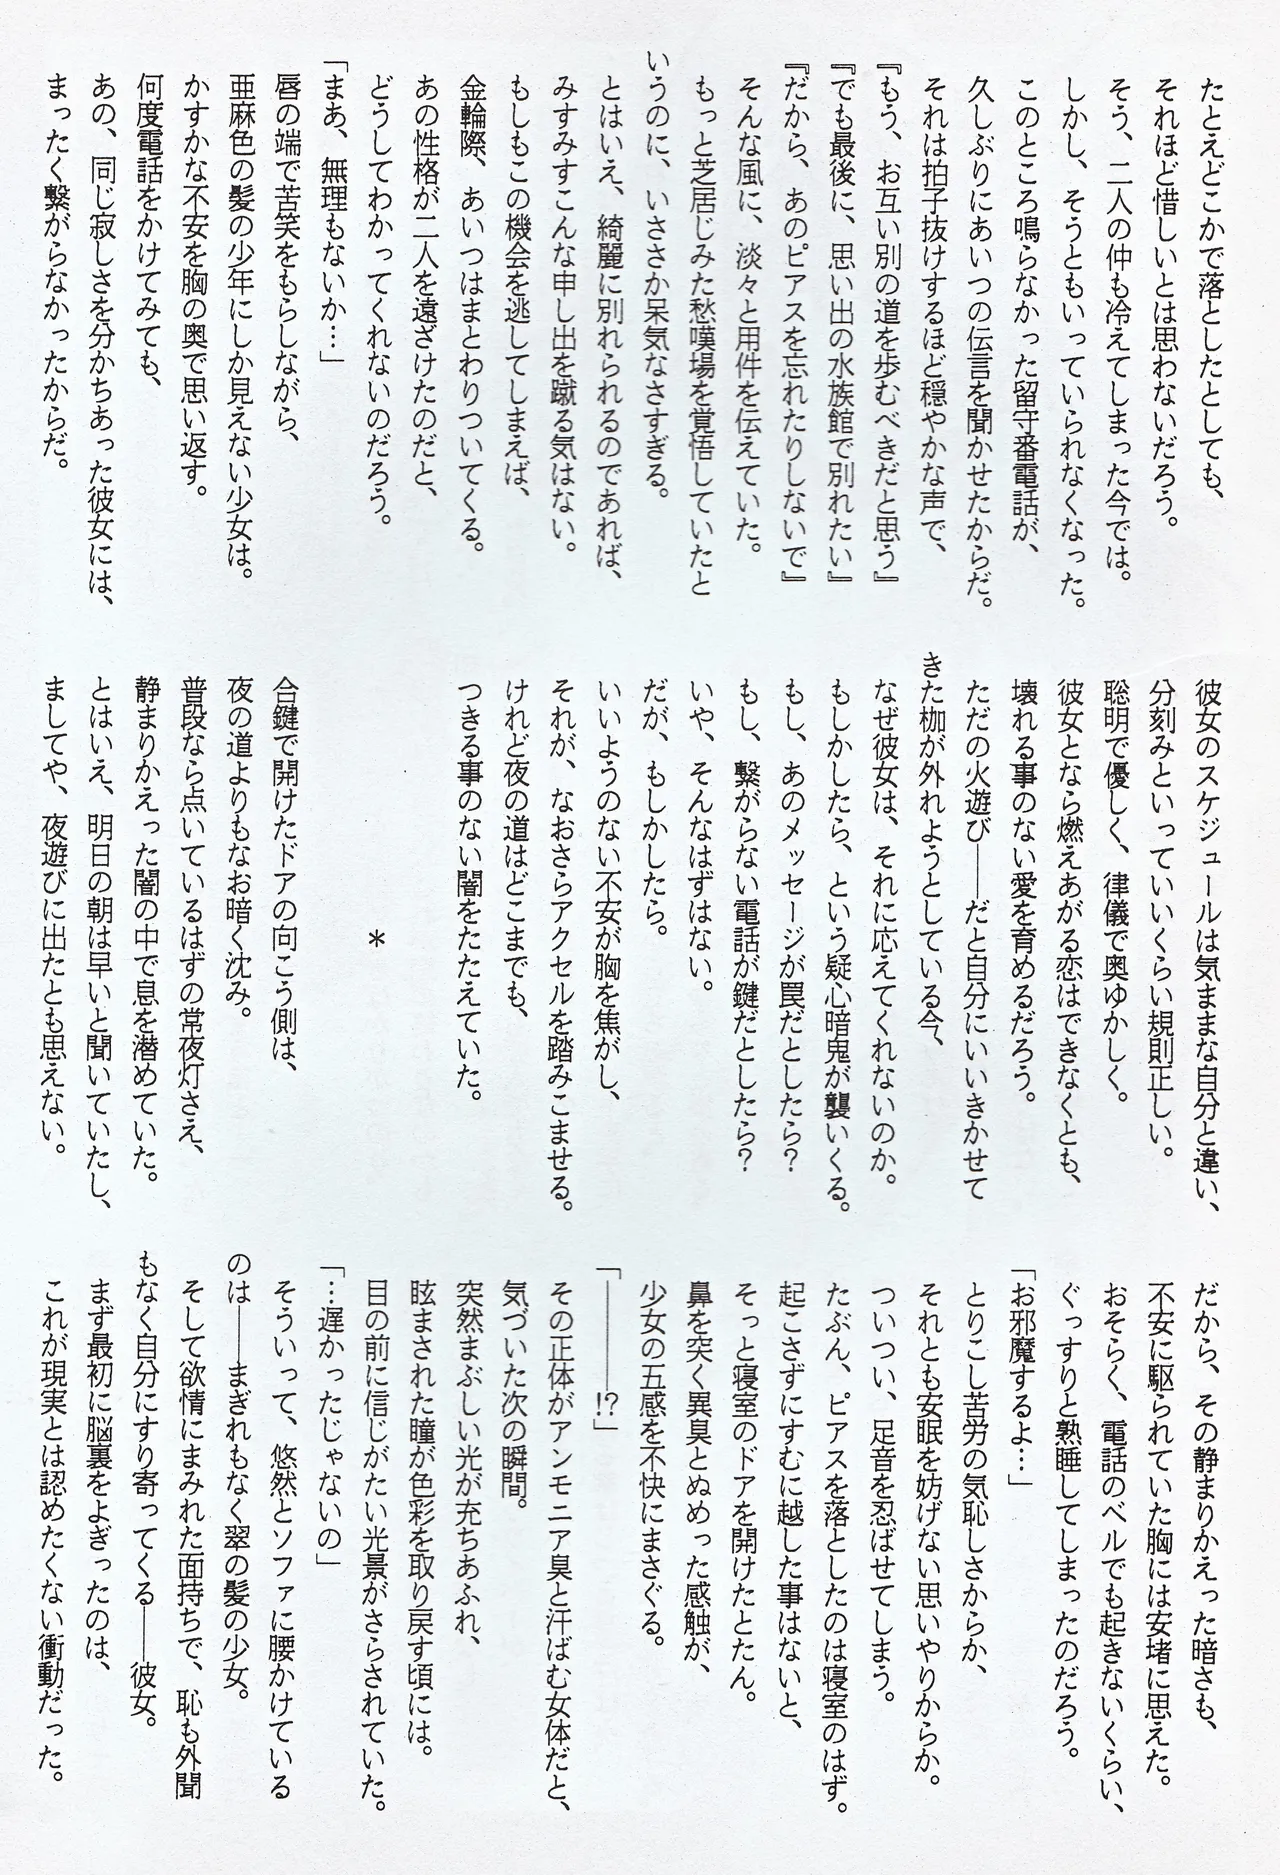 たとえどこかで落としたとしても、
それほど惜しいとは思わないだろう。
そう、二人の仲も冷えてしまった今では。
しかし、そうともいっていられなくなった。
このところ鳴らなかった留守番電話が、
久しぶりにあいつの伝言を聞かせたからだ。
それは拍子抜けするほど穏やかな声で、
『もう、お互い別の道を歩むべきだと思う』
『でも最後に、思い出の水族館で別れたい』
『だから、あのピアスを忘れたりしないで』
そんな風に、淡々と用件を伝えていた。
もっと芝居じみた愁嘆場を覚悟していたと
いうのに、いささか呆気なさすぎる。
とはいえ、綺麗に別れられるのであれば、
みすみすこんな申し出を蹴る気はない。
もしもこの機会を逃してしまえば、
金輪際、あいつはまとわりついてくる。
あの性格が二人を遠ざけたのだと、
どうしてわかってくれないのだろう。
「まあ、無理もないか…」
唇の端で苦笑をもらしながら、
亜麻色の髪の少年にしか見えない少女は。
かすかな不安を胸の奥で思い返す。
何度電話をかけてみても、
あの、同じ寂しさを分かちあった彼女には、
まったく繋がらなかったからだ。
彼女のスケジュールは気ままな自分と違い、
分刻みといっていいくらい規則正しい。
聡明で優しく、律儀で奥ゆかしく。
彼女となら燃えあがる恋はできなくとも、
壊れる事のない愛を育めるだろう。
ただの火遊び――だと自分にいいきかせて
きた枷が外れようとしている今、
なぜ彼女は、それに応えてくれないのか。
もしかしたら、という疑心暗鬼が襲いくる。
もし、あのメッセージが罠だとしたら？
もし、繋がらない電話が鍵だとしたら？
いや、そんなはずはない。
だが、もしかしたら。
いいようのない不安が胸を焦がし、
それが、なおさらアクセルを踏みこませる。
けれど夜の道はどこまでも、
つきる事のない闇をたたえていた。
＊
合鍵で開けたドアの向こう側は、
夜の道よりもなお暗く沈み。
普段なら点いているはずの常夜灯さえ、
静まりかえった闇の中で息を潜めていた。
とはいえ、明日の朝は早いと聞いていたし、
ましてや、夜遊びに出たとも思えない。
だから、その静まりかえった暗さも、
不安に駆られていた胸には安堵に思えた。
おそらく、電話のベルでも起きないくらい、
ぐっすりと熟睡してしまったのだろう。
「お邪魔するよ…」
とりこし苦労の気恥しさからか、
それとも安眠を妨げない思いやりからか。
ついつい、足音を忍ばせてしまう。
たぶん、ピアスを落としたのは寝室のはず。
起こさずにすむに越した事はないと、
そっと寝室のドアを開けたとたん。
鼻を突く異臭とぬめった感触が、
少女の五感を不快にまさぐる。
「――――!?」
その正体がアンモニア臭と汗ばむ女体だと、
気づいた次の瞬間。
突然まぶしい光が充ちあふれ、
眩まされた瞳が色彩を取り戻す頃には。
目の前に信じがたい光景がさらされていた。
「…遅かったじゃないの」
そういって、悠然とソファに腰かけている
のは――まぎれもなく翠の髪の少女。
そして欲情にまみれた面持ちで、恥も外聞
もなく自分にすり寄ってくる――彼女。
まず最初に脳裏をよぎったのは、
これが現実とは認めたくない衝動だった。